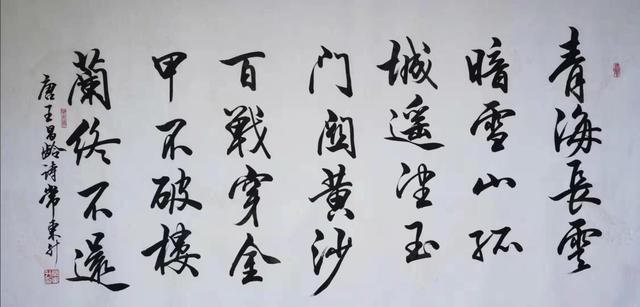 青海長雲
暗雪山孤
城遥望玉
門關黄沙
百戰穿金
甲不破樓
蘭終不還
唐王昌齡詩常東升